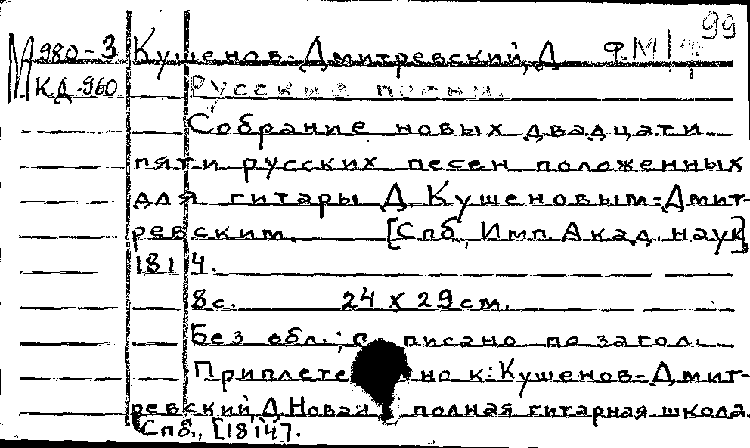 99
М 980-3 Кушенов-Дмитревский, Д Ф.М
КД-960 Русские песни.
Собрание новых двадцати
пяти русских песен положенных
для гитары Д Кушеновым-Дмит-
ревским. [Спб, Имп. Акад. наук]
1814.
8с. 24 х 29см.
Без обл.; писано по загол.
Приплете но к: Кушенов-Дмит-
ревский, Д Новая полная гитарная школа.
Спб., [1814].